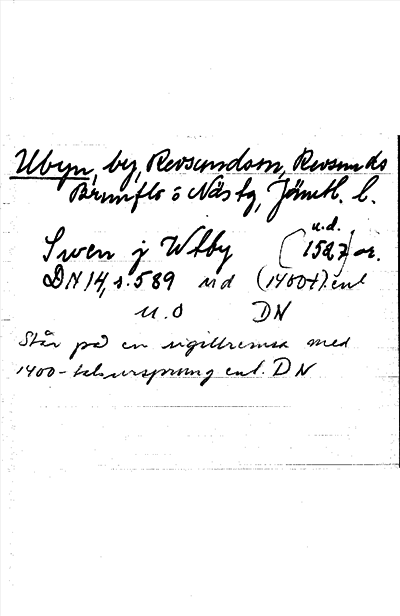 Utbyn, by, Revsundssn, Revsunds
Brunflo o Näs tg, Jämtl. l.
u.d.
Swen j Wtby (1527) or.
DN 14, s. 589 ud (1400t) enl
u.o DN
Står på en sigillremsa med
1400-talsursprung enl. DN